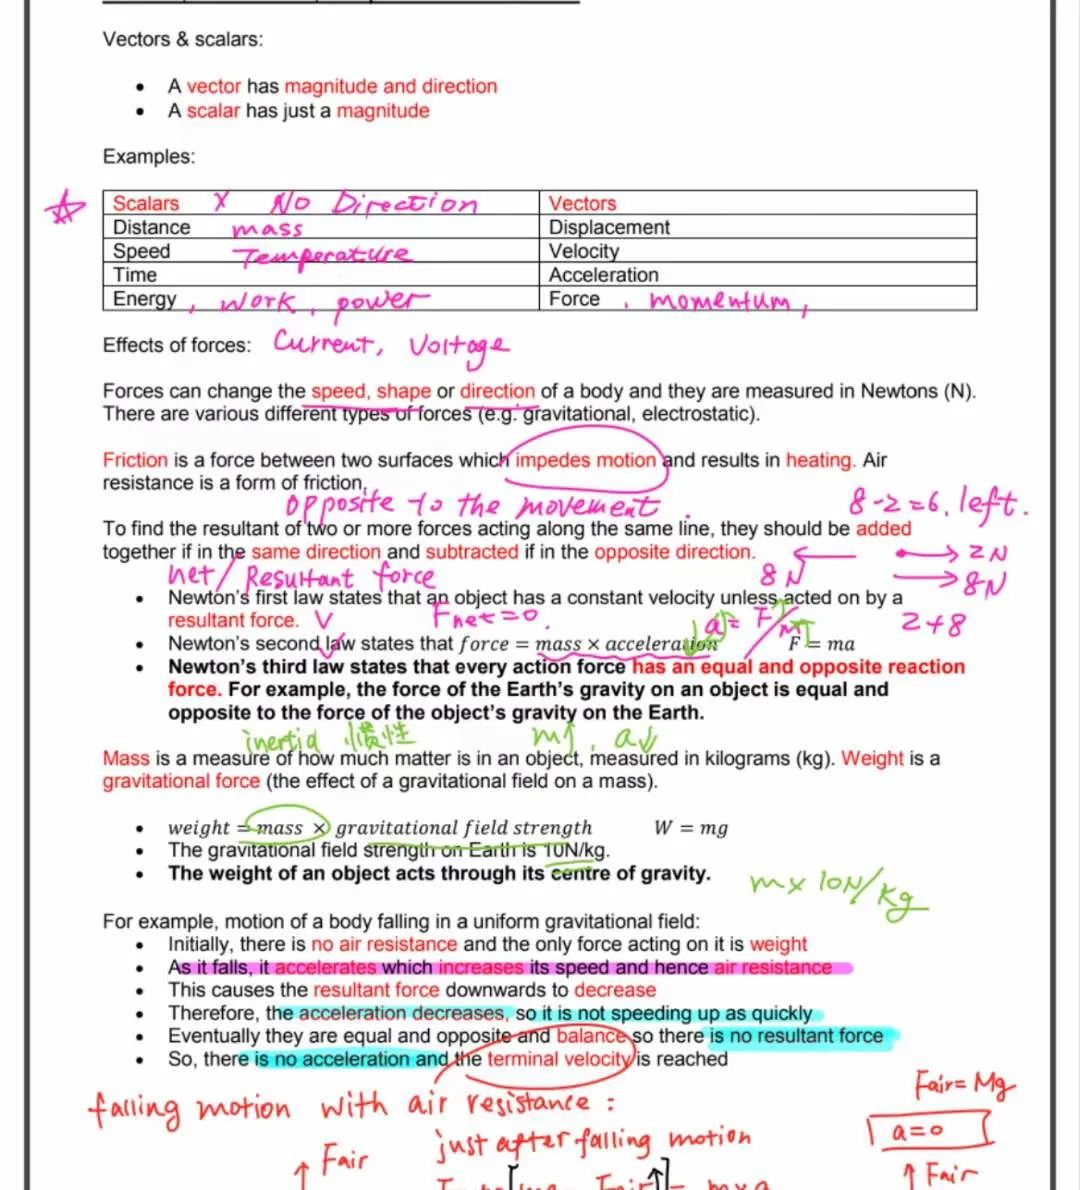 Vectors & scalars:
• A vector has magnitude and direction
• A scalar has just a magnitude
Examples:
Scalars X No Direction Vectors
Distance mass Displacement
Speed Temperature Velocity
Time Acceleration
Energy, work, power Force, momentum,
Effects of forces: Current, Voltage
Forces can change the speed, shape or direction of a body and they are measured in Newtons (N).
There are various different types of forces (e.g. gravitational, electrostatic).
Friction is a force between two surfaces which impedes motion and results in heating. Air
resistance is a form of friction.
opposite to the movement. 8-2=6, left.
To find the resultant of two or more forces acting along the same line, they should be added
together if in the same direction and subtracted if in the opposite direction. 2N
net/Resultant force 8N 8N
• Newton's first law states that an object has a constant velocity unless acted on by a
resultant force. V Fnet=0. a= F/m 2+8
• Newton's second law states that force = mass × acceleration F = ma
• Newton's third law states that every action force has an equal and opposite reaction
force. For example, the force of the Earth's gravity on an object is equal and
opposite to the force of the object's gravity on the Earth.
inertia 惯性 m↑, a↓
Mass is a measure of how much matter is in an object, measured in kilograms (kg). Weight is a
gravitational force (the effect of a gravitational field on a mass).
• weight = mass × gravitational field strength W = mg
• The gravitational field strength on Earth is 10N/kg.
• The weight of an object acts through its centre of gravity.
m× 10N/kg
For example, motion of a body falling in a uniform gravitational field:
• Initially, there is no air resistance and the only force acting on it is weight
• As it falls, it accelerates which increases its speed and hence air resistance
• This causes the resultant force downwards to decrease
• Therefore, the acceleration decreases, so it is not speeding up as quickly
• Eventually they are equal and opposite and balance so there is no resultant force
• So, there is no acceleration and the terminal velocity is reached
Fair= Mg
falling motion with air resistance:
a=0
just after falling motion
↑ Fair
↑ Fair